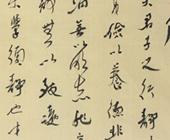 夫君子之行靜
身儉以養德非
無以明志非
靜無以致遠
夫學須靜也才